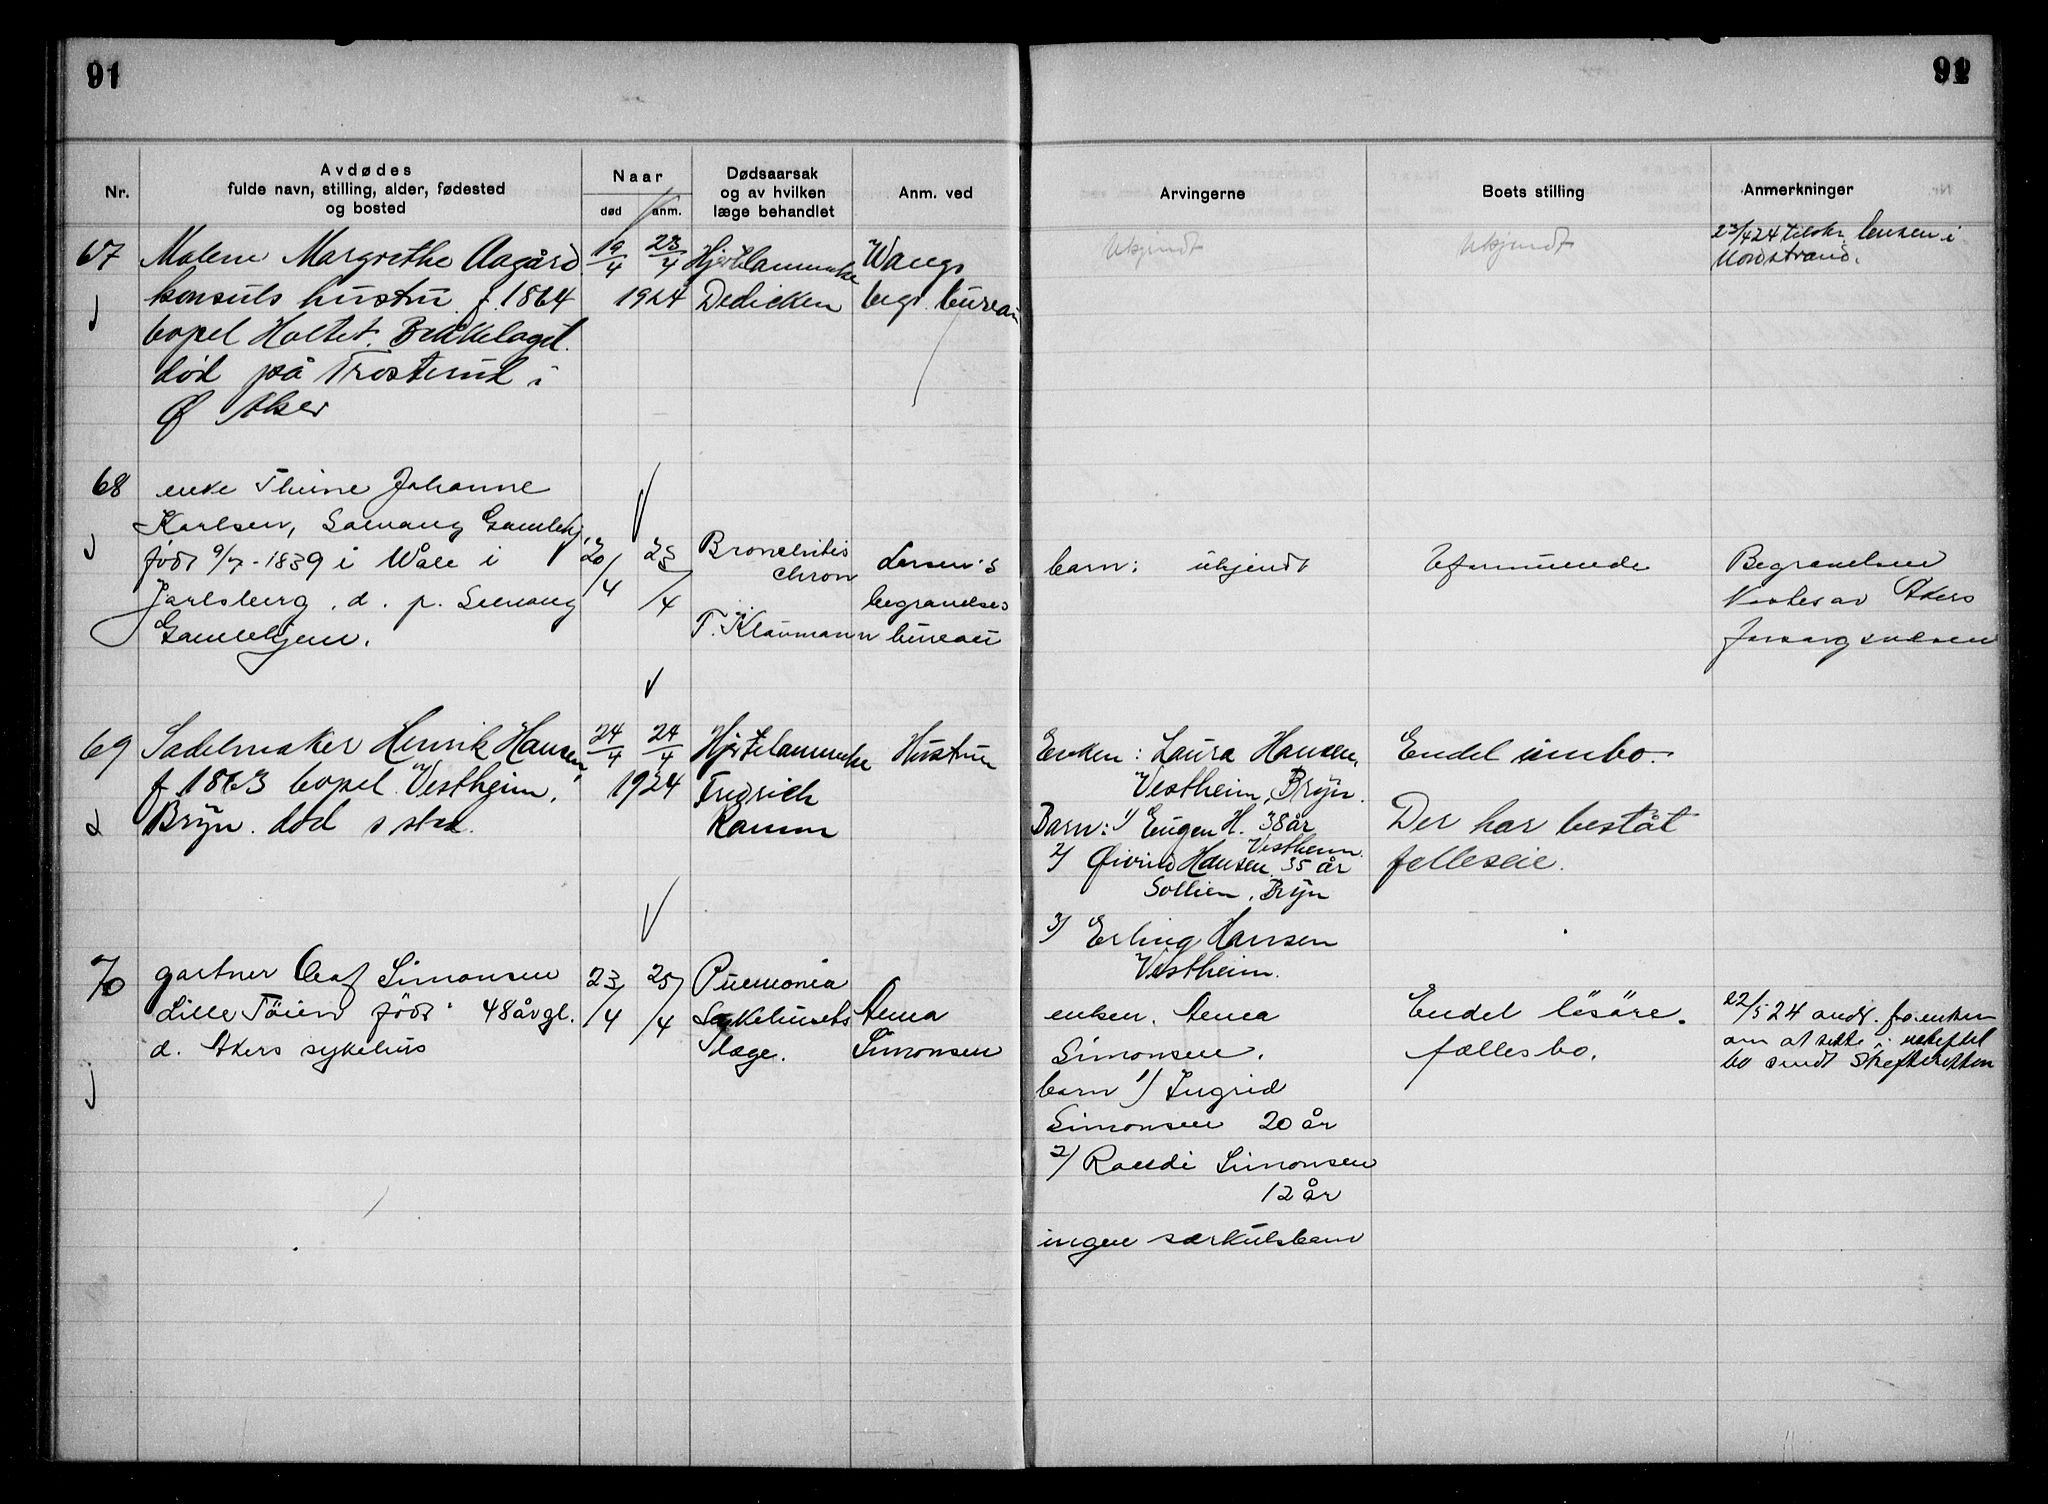 91
92
Nr.
Avdødes
fulde navn, stilling, alder, fødested
og bosted
Naar
død
anm.
Dødsaarsak
og av hvilken
læge behandlet
Anm. ved
Arvingerne
Boets stilling
Anmerkninger
67
Malene Margrethe Aagård
konsuls hustru f. 1864
bopel Holtet. Bekkelaget.
død på Trosterud i
Ø Aker
19/4 23/4
1924
Hjertelammelse
Dedicken
Wangs
begr. bureau
Ukjendt
Ukjendt
23/4 24 tilskr. lensm i
Nordstrand.
68
enke Thine Johanne
Karlsen, Solvang Gamlehj.
født 9/7-1839 i Wåle i
Jarlsberg. d. p. Solvang
Gamlehjem.
20/4 23/4
Bronchitis
chron
T. Klaumann
Larsen's
begravelses
bureau
barn: ukjendt
Uformuende
Begravelsen
av Akers
69
Sadelmaker Henrik Hansen,
f. 1863 bopel Vestheim,
Bryn. død s std.
24/4 24/4
1924
Hjertelammelse
Fredrich
Ramm
Hustru
Enken: Laura Hansen,
Vestheim, Bryn.
Barn: 1) Eugen H. 38 år
Vestheim.
2) Øivind Hansen, 35 år
Sollien, Bryn
3) Erling Hansen
Vestheim.
Endel innbo.
Der har bestått
felleseie.
70
gartner Olaf Simonsen
Lille Tøien født 48 år gl.
d. Akers sykehus
23/4 25/4
Pnemonia
Sykehusets
læge.
Anna
Simonsen
enken. Anna
Simonsen.
barn 1) Ingrid
Simonsen 20 år
2) Randi Simonsen
12 år
ingen særkulsbarn
Endel løsøre.
fællesbo.
22/5 24 andr. fra enken
om at sitte i uskiftet
bo sendt Skifteretten